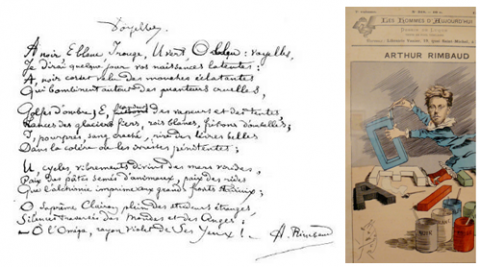 Voyelles
A noir, E blanc, I rouge, U vert, O bleu : voyelles,
Je dirai quelque jour vos naissances latentes :
A, noir corset velu des mouches éclatantes
Qui bombinent autour des puanteurs cruelles,
Golfes d'ombre ; E, des vapeurs et des tentes,
Lances des glaciers fiers, rois blancs, frissons d'ombelles ;
I, pourpres, sang craché, rire des lèvres belles
Dans la colère ou les ivresses pénitentes ;
U, cycles, vibrements divins des mers virides,
Paix des pâtis semés d'animaux, paix des rides
Que l'alchimie imprime aux grands fronts studieux ;
O, suprême Clairon plein des strideurs étranges,
Silences traversés des Mondes et des Anges :
— O l'Oméga, rayon violet de Ses Yeux !
A. Rimbaud
LES HOMMES D'AUJOURD'HUI
ARTHUR RIMBAUD
A
I